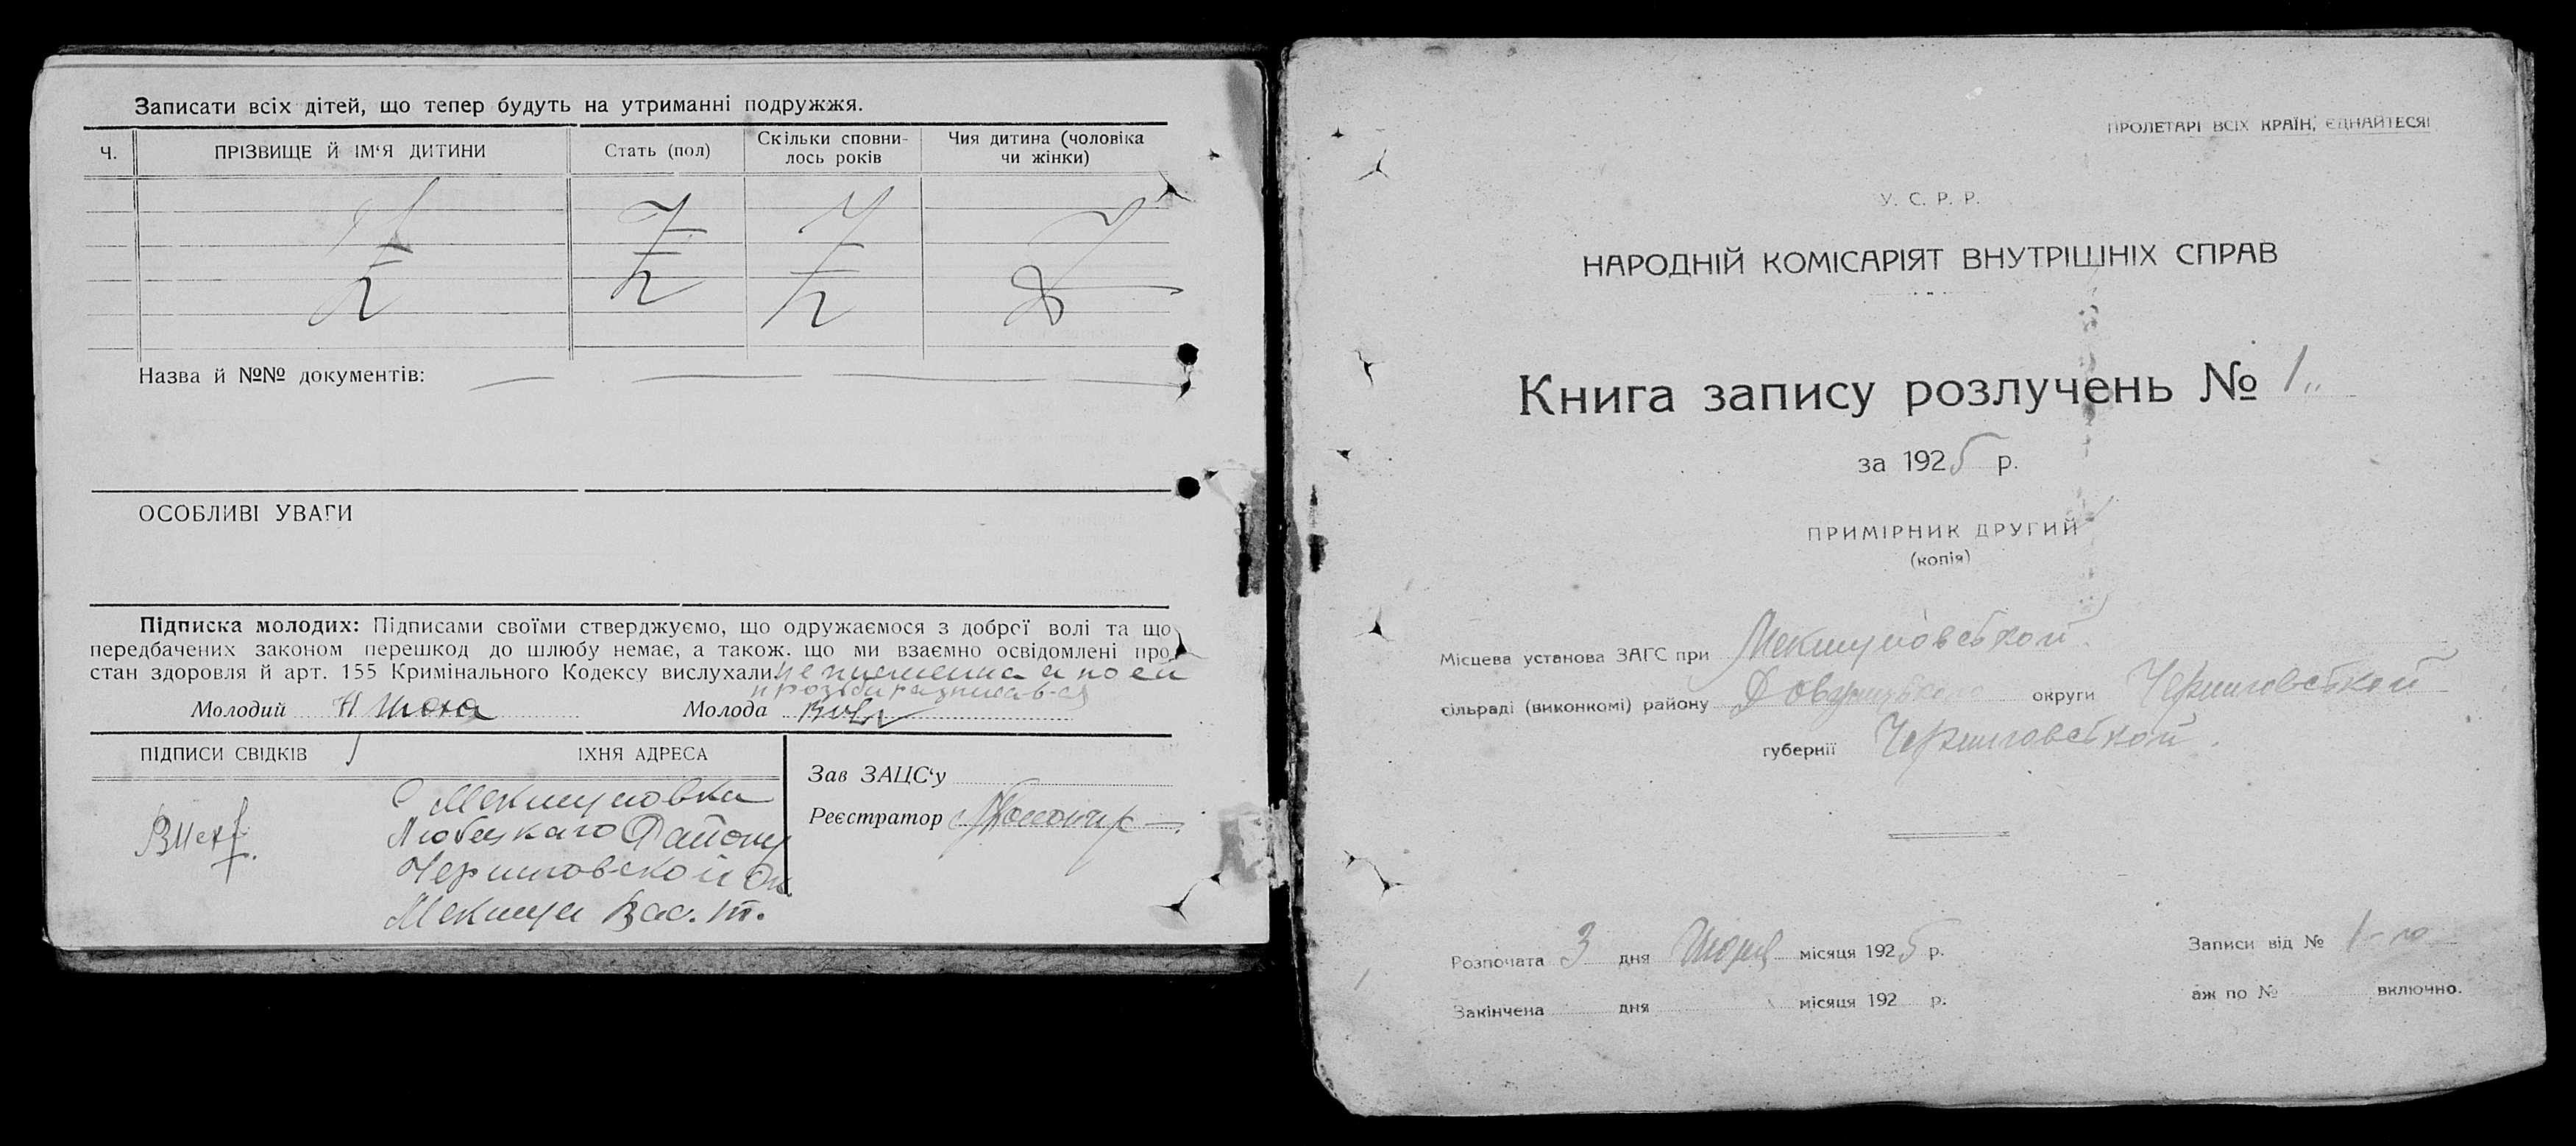 Записати всіх дітей, що тепер будуть на утриманні подружжя.
Ч.
ПРІЗВИЩЕ Й ІМ‘Я ДИТИНИ
Стать (пол)
Скільки сповни-
лось років
Чия дитина (чоловіка
чи жінки)
Назва й №№ документів:
ОСОБЛИВІ УВАГИ
Підписка молодих: Підписами своїми стверджуємо, що одружаємося з доброї волі та що
передбачених законом перешкод до шлюбу немає, а також. що ми взаємно освідомлені про
стан здоровля й арт. 155 Кримінального Кодексу вислухали. неписменна а по ей
Молодий
Молода
ПІДПИСИ СВІДКІВ
ЇХНЯ АДРЕСА
С Мекшуновка
Любецкаго Району
Черниговской Ок
Мекшун Вас. т.
Зав ЗАЦС‘у
Реєстратор
ПРОЛЕТАРІ ВСІХ КРАЇН, ЄДНАЙТЕСЯ!
У. С. Р. Р.
НАРОДНІЙ КОМІСАРІЯТ ВНУТРІШНІХ СПРАВ
Книга запису розлучень № 1
за 1925 р.
ПРИМІРНИК ДРУГИЙ
(копія)
Місцева установа ЗАГС при Мекшуновской
сільраді (виконкомі) району округи Черниговской
губернії Черниговской.
Розпочата 3 дня місяця 1925 р.
Закінчена дня місяця 192 р.
Записи від № 1-го
аж по № включно.